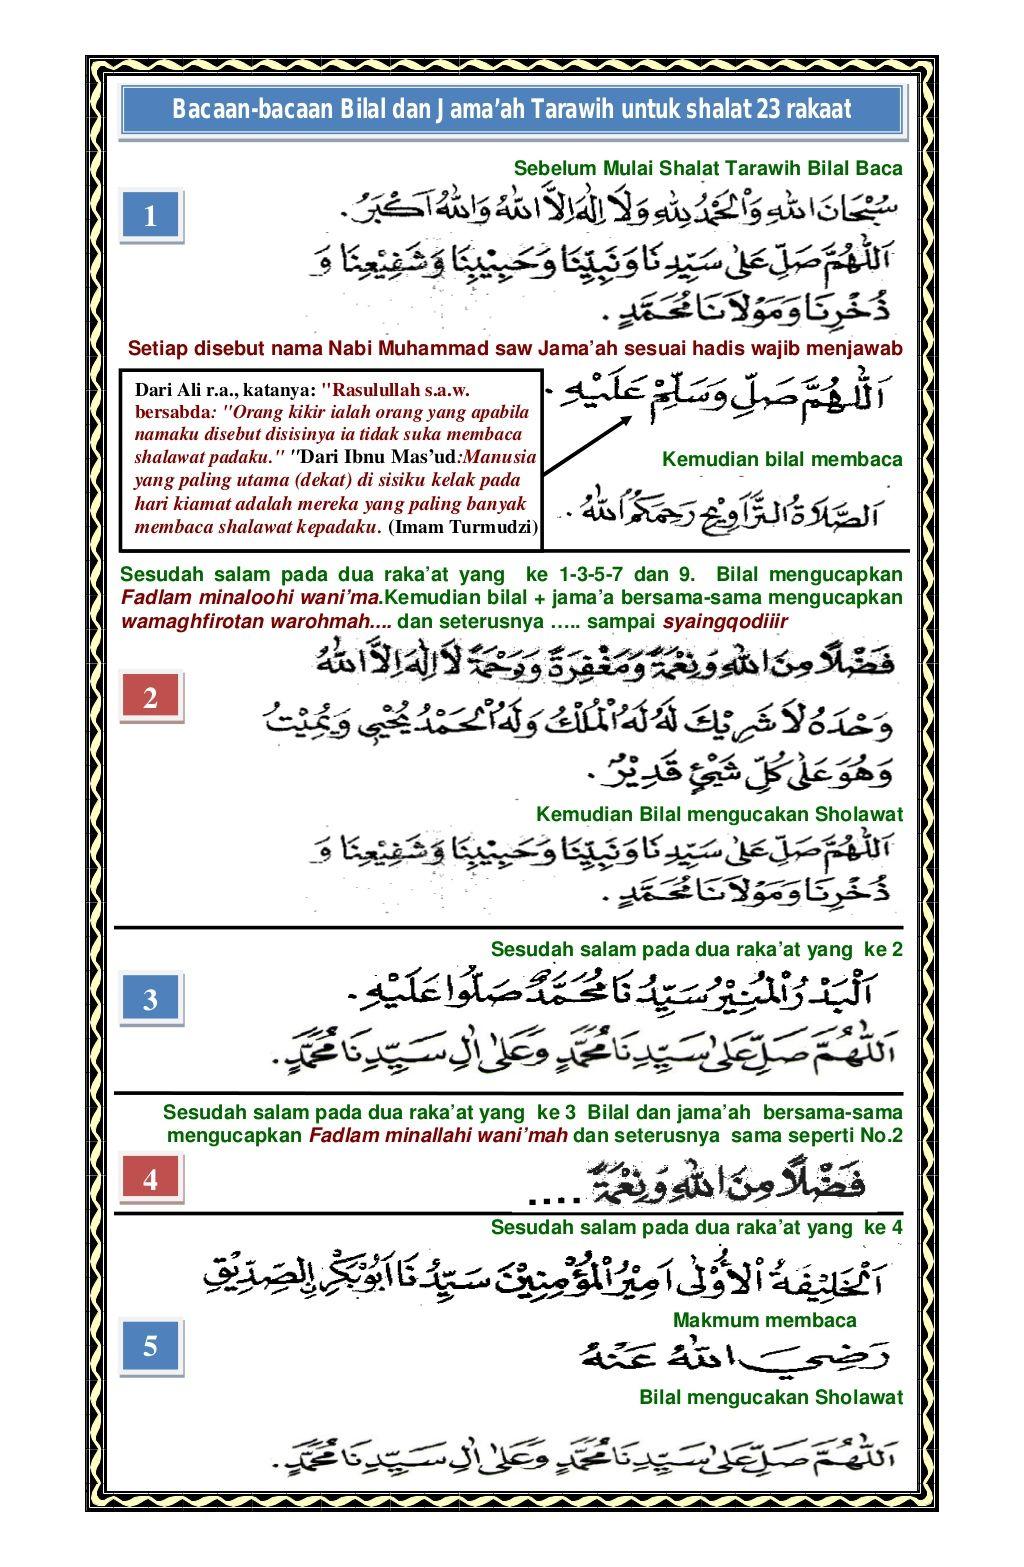 Bacaan-bacaan Bilal dan Jama'ah Tarawih untuk shalat 23 rakaat
Sebelum Mulai Shalat Tarawih Bilal Baca
1
سُبْحَانَ اللهِ وَالْحَمْدُ لِلهِ وَلَا اِلٰهَ اِلَّا اللهُ وَاللهُ اَكْبَرُ.
اَللّٰهُمَّ صَلِّ عَلٰى سَيِّدِنَا وَنَبِيِّنَا وَحَبِيْبِنَا وَشَفِيْعِنَا وَ
ذُخْرِنَا وَمَوْلَانَا مُحَمَّدٍ.
Setiap disebut nama Nabi Muhammad saw Jama'ah sesuai hadis wajib menjawab
اَللّٰهُمَّ صَلِّ وَسَلِّمْ عَلَيْهِ.
Dari Ali r.a., katanya: "Rasulullah s.a.w.
bersabda: "Orang kikir ialah orang yang apabila
namaku disebut disisinya ia tidak suka membaca
shalawat padaku." "Dari Ibnu Mas'ud:Manusia
yang paling utama (dekat) di sisiku kelak pada
hari kiamat adalah mereka yang paling banyak
membaca shalawat kepadaku. (Imam Turmudzi)
Kemudian bilal membaca
اَلصَّلَاةُ التَّرَاوِيْحِ رَحِمَكُمُ اللهُ.
Sesudah salam pada dua raka'at yang ke 1-3-5-7 dan 9. Bilal mengucapkan
Fadlam minaloohi wani'ma.Kemudian bilal + jama'a bersama-sama mengucapkan
wamaghfirotan warohmah.... dan seterusnya ..... sampai syaingqodiiir
2
فَضْلًا مِنَ اللهِ وَنِعْمَةً وَمَغْفِرَةً وَرَحْمَةً لَا اِلٰهَ اِلَّا اللهُ
وَحْدَهُ لَا شَرِيْكَ لَهُ لَهُ الْمُلْكُ وَلَهُ الْحَمْدُ يُحْيِى وَيُمِيْتُ
وَهُوَ عَلٰى كُلِّ شَيْئٍ قَدِيْرٌ.
Kemudian Bilal mengucakan Sholawat
اَللّٰهُمَّ صَلِّ عَلٰى سَيِّدِنَا وَنَبِيِّنَا وَحَبِيْبِنَا وَشَفِيْعِنَا وَ
ذُخْرِنَا وَمَوْلَانَا مُحَمَّدٍ.
Sesudah salam pada dua raka'at yang ke 2
3
اَلْبَدْرُ الْمُنِيْرُ سَيِّدُنَا مُحَمَّدٌ صَلُّوْا عَلَيْهِ.
اَللّٰهُمَّ صَلِّ عَلٰى سَيِّدِنَا مُحَمَّدٍ وَعَلٰى اٰلِ سَيِّدِنَا مُحَمَّدٍ.
Sesudah salam pada dua raka'at yang ke 3 Bilal dan jama'ah bersama-sama
mengucapkan Fadlam minallahi wani'mah dan seterusnya sama seperti No.2
4
فَضْلًا مِنَ اللهِ وَنِعْمَةً ....
Sesudah salam pada dua raka'at yang ke 4
اَلْخَلِيْفَةُ الْاُوْلٰى اَمِيْرُ الْمُؤْمِنِيْنَ سَيِّدُنَا اَبُوْبَكْرٍ اِلصِّدِّيْقِ
Makmum membaca
5
رَضِيَ اللهُ عَنْهُ
Bilal mengucakan Sholawat
اَللّٰهُمَّ صَلِّ عَلٰى سَيِّدِنَا مُحَمَّدٍ وَعَلٰى اٰلِ سَيِّدِنَا مُحَمَّدٍ.